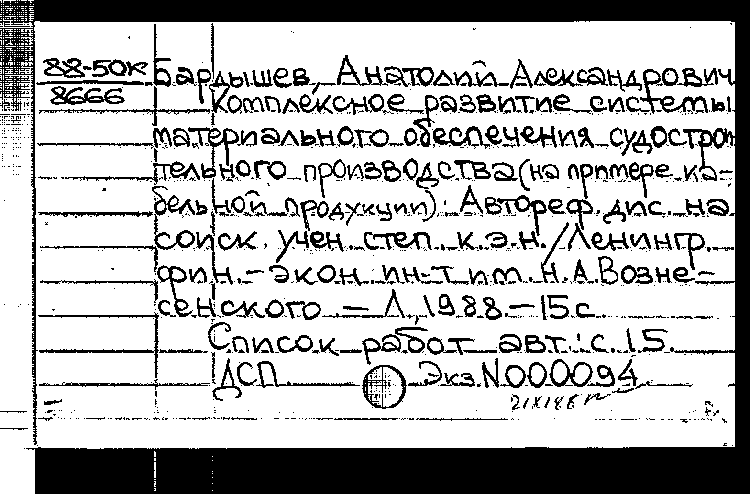 88-50К
8666
Бардышев, Анатолий Александрович
Комплексное развитие системы
материального обеспечения судострои
тельного производства (на примере ка-
бельной продукции): Автореф. дис. на
соиск. учен. степ. к.э.н. / Ленингр.
фин.-экон. ин-т им. Н.А. Возне-
сенского. — Л., 1988 — 15 с.
Список работ авт.: с. 15.
ДСП Экз. N000094